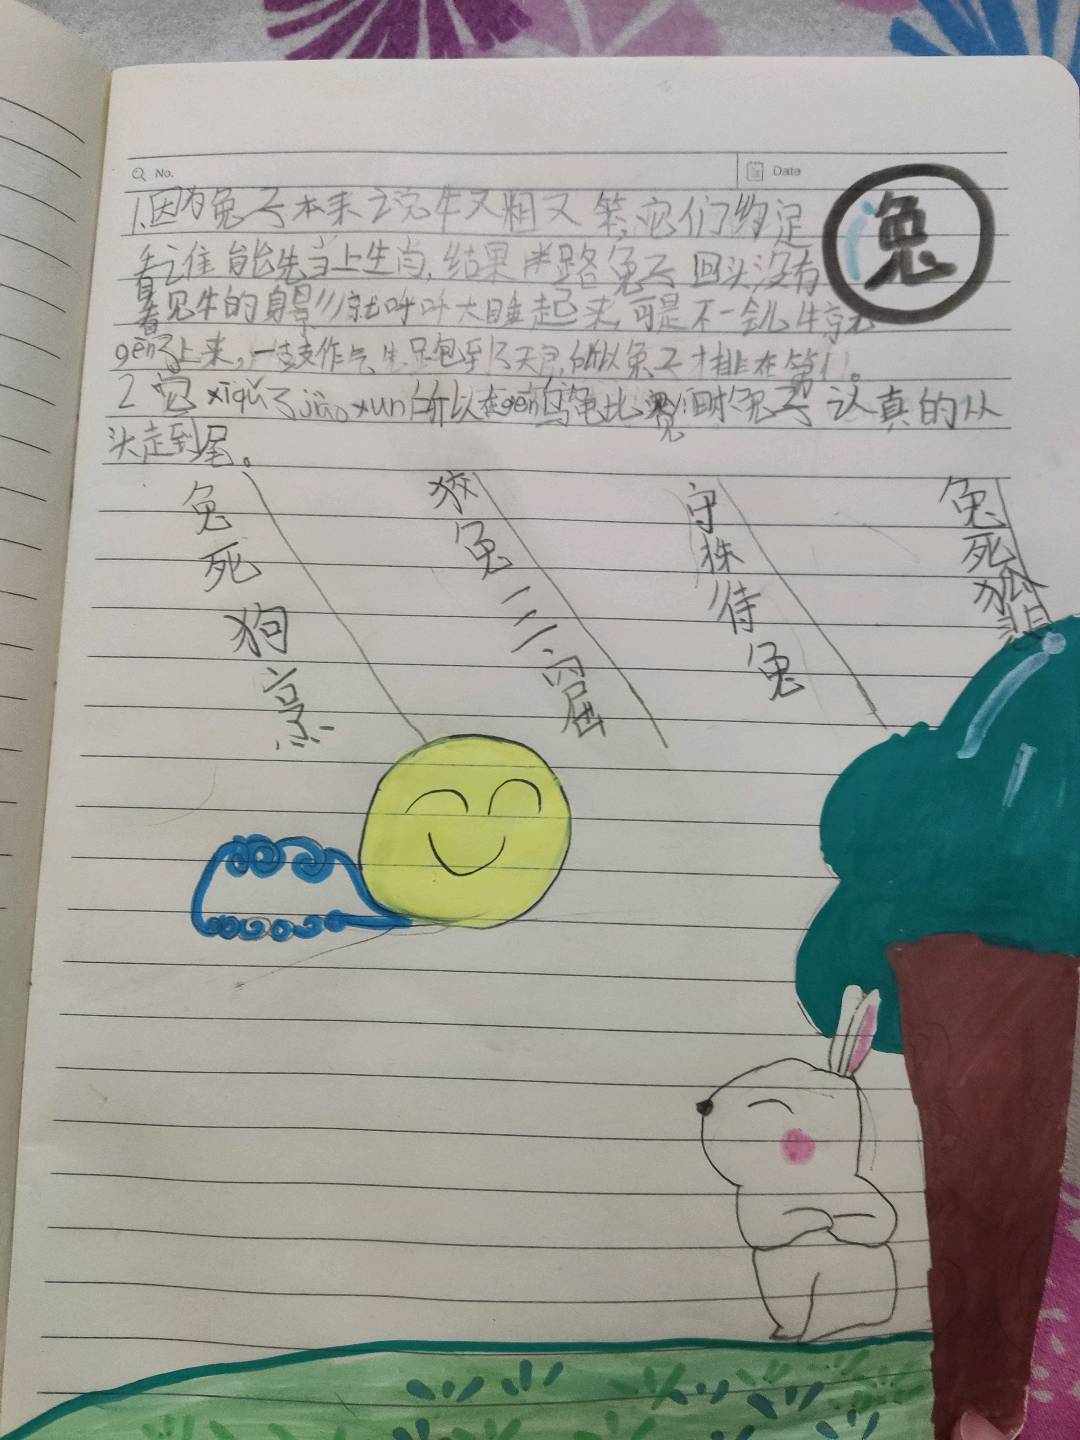 No.
Date
兔
1.因为兔子本来说牛又粗又笨,它们约定
看谁能先当上生肖,结果半路兔子回头没有
看见牛的身影就呼呼大睡起来,可是不一会儿牛就
gēn了上来,一支作气先跑到了天宫,所以兔子才排在第
2 它xīqǔ了jiào xun所以在gēn乌龟比赛时兔子认真的从
头走到尾。
兔死狗烹
狡兔三窟
守株待兔
兔死狐悲